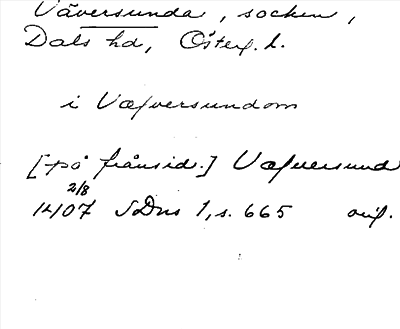 Väversunda, socken,
Dals hd, Österg. l.
i Væfversundom
[på frånsid.] Væfuersund
2/8
1407 SDns 1, s. 665 orig.